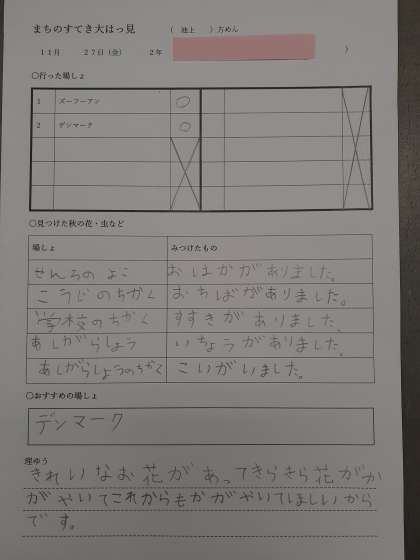 まちのすてき大はっ見
(池上)方めん
11月 27日(金) 2年 )
○行った場しょ
1 ズーフーアン ○
2 デンマーク ○
○見つけた秋の花・虫など
場しょ みつけたもの
せんろの よこ おはかがありました。
こうじのちかく おちばがありました。
学校のちかく すすきがありました、
あしがらしょう いちょうがありました。
あしがらしょうのちかく こいがいました。
○おすすめの場しょ
デンマーク
理ゆう
きれいなお花があってきらきら花がか
がやいてこれからもかがやいてほしいから
です。